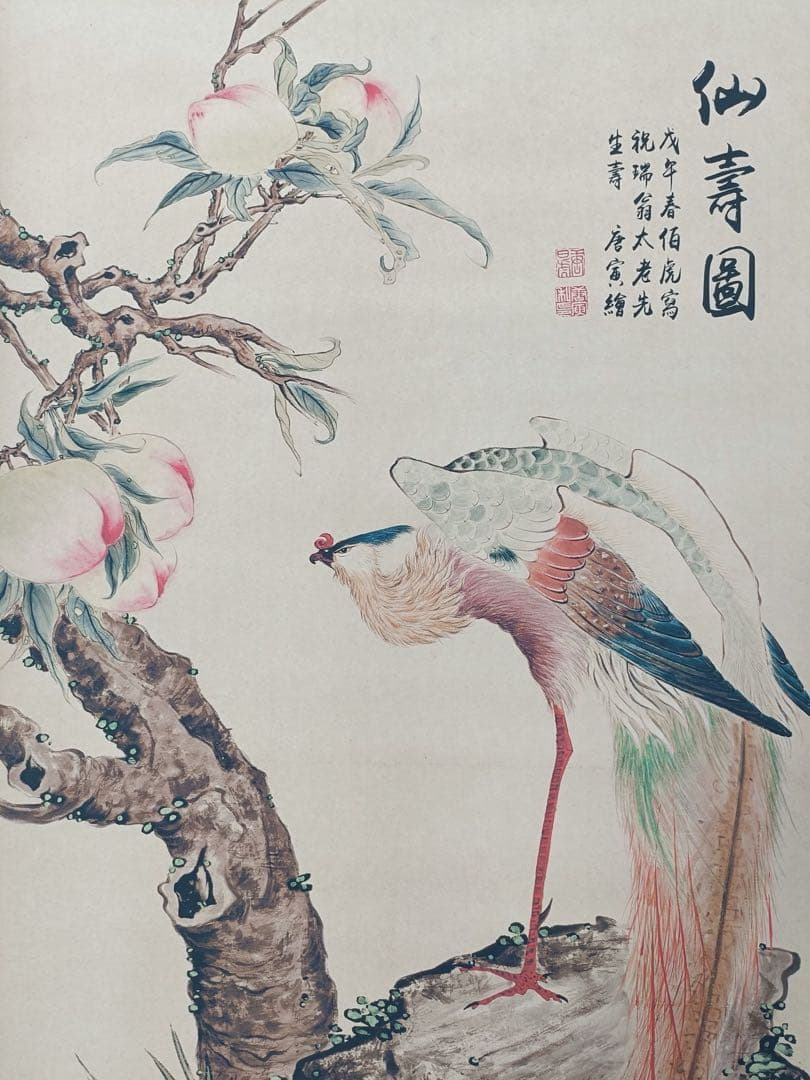 仙壽圖
戊午春伯虎寫
祝瑞翁太老先
生壽 唐寅繪